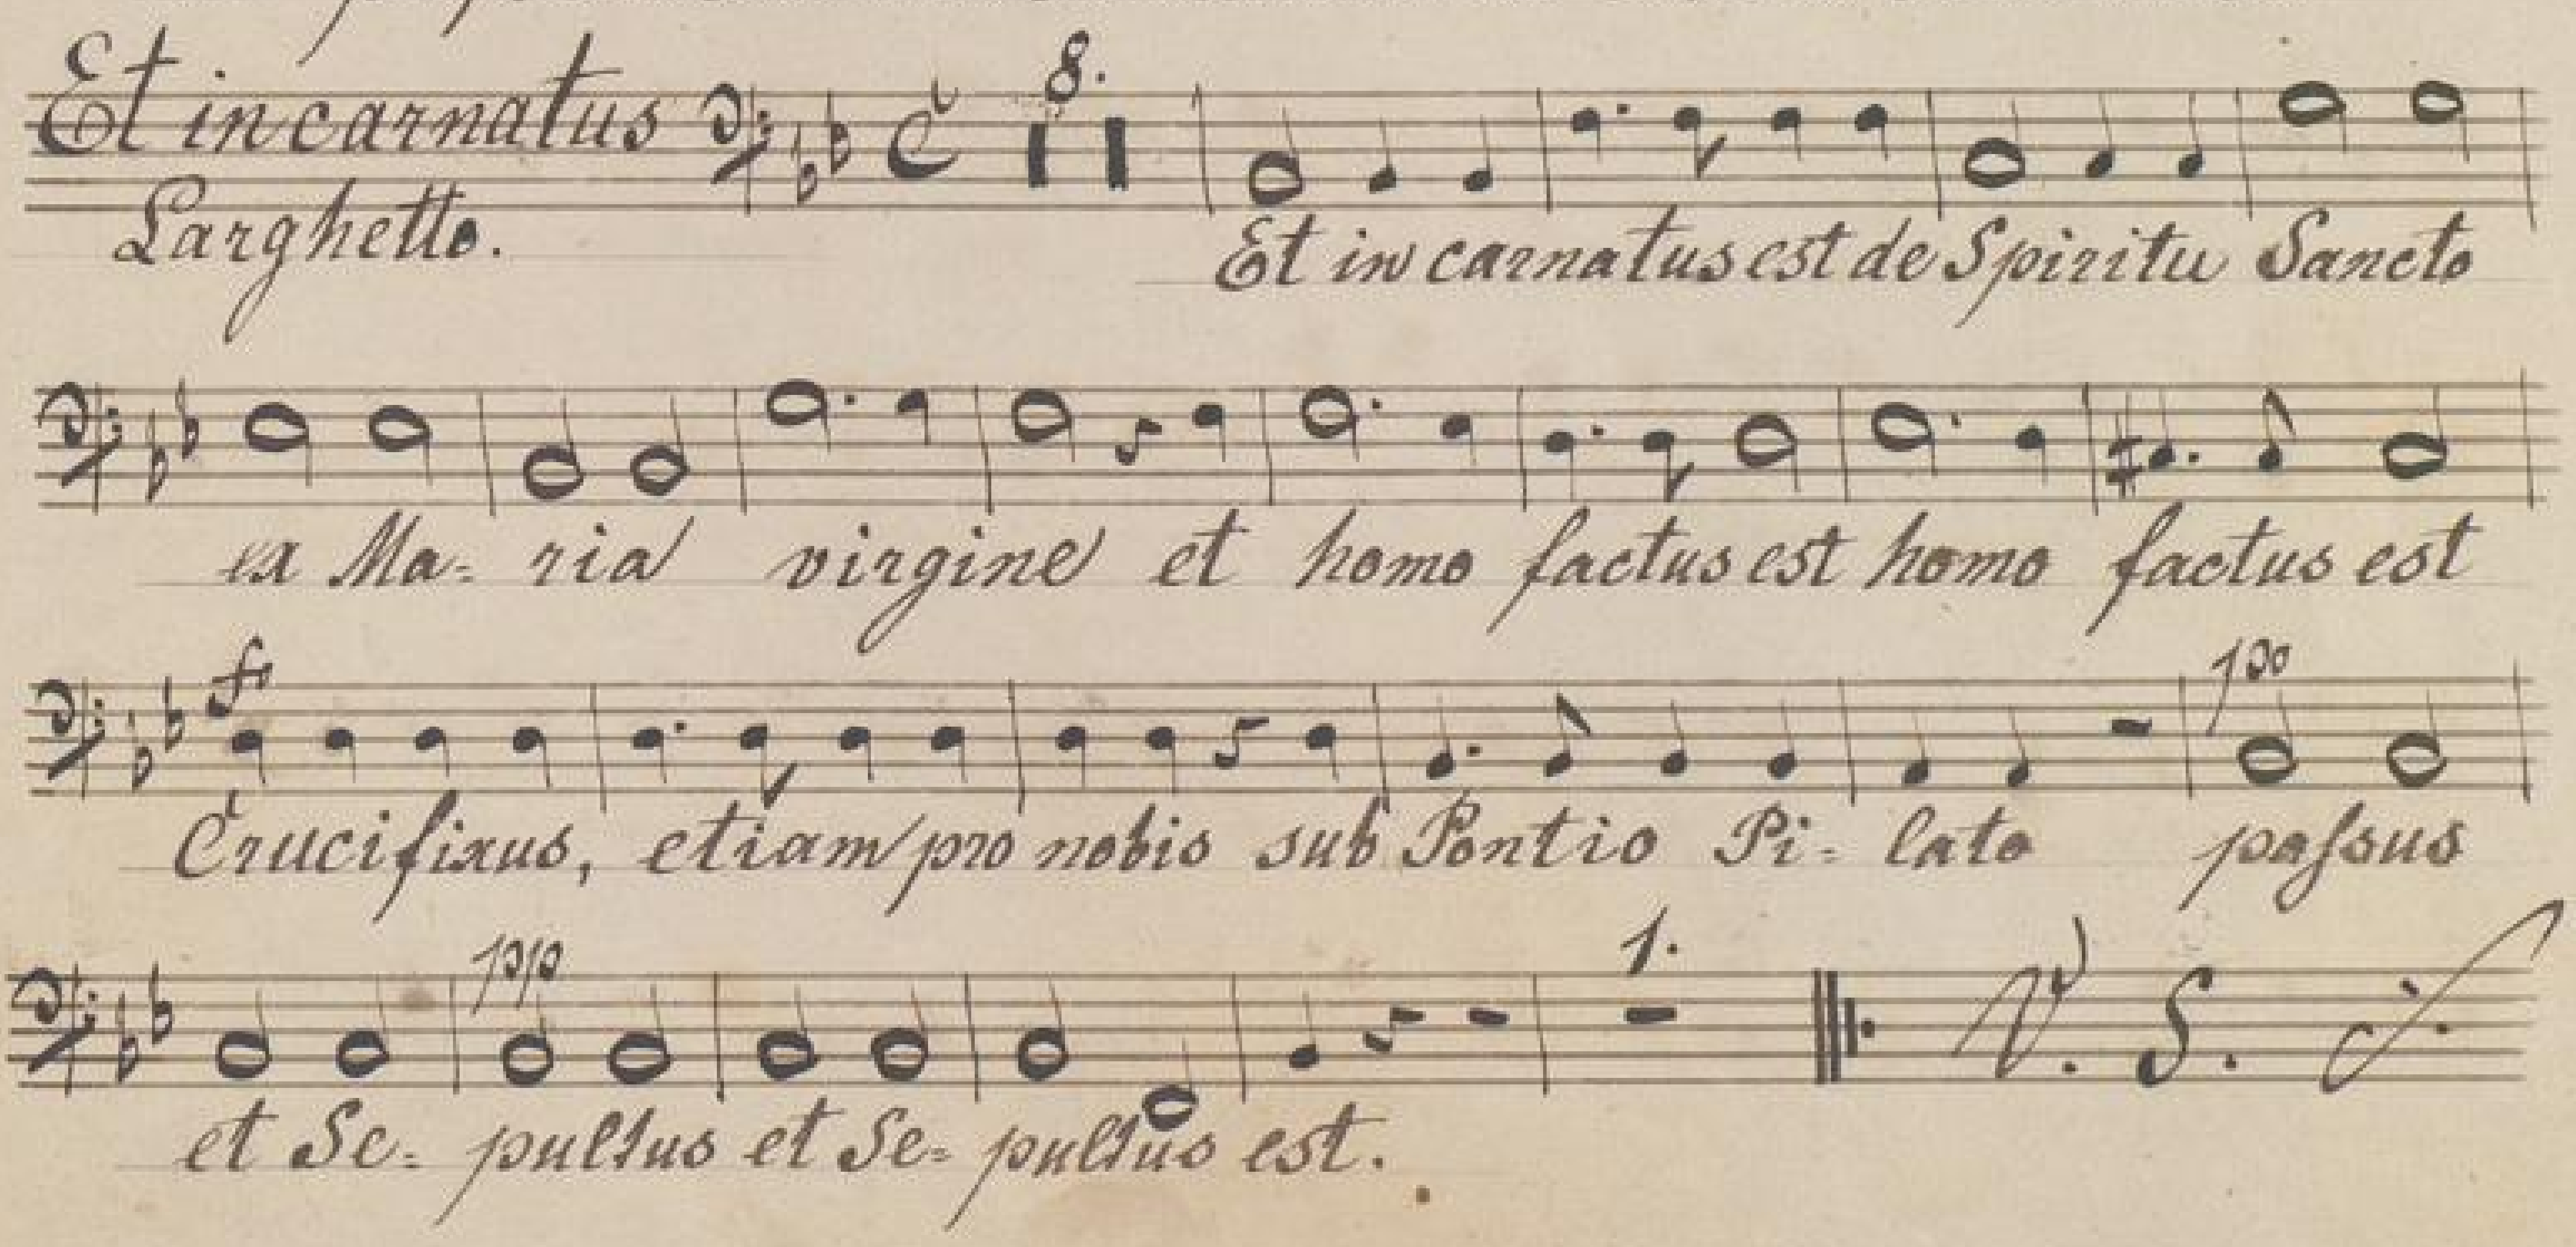 Et incarnatus
8.
Larghetto.
Et in carnatus est de Spiritu Sancto
ex Ma= ria virgine et homo factus est homo factus est
f
po
Crucifixus, etiam pro nobis sub Pontio Pi= lato paſsus
pp
1.
V. S.
et Se= pultus et Se= pultus est.